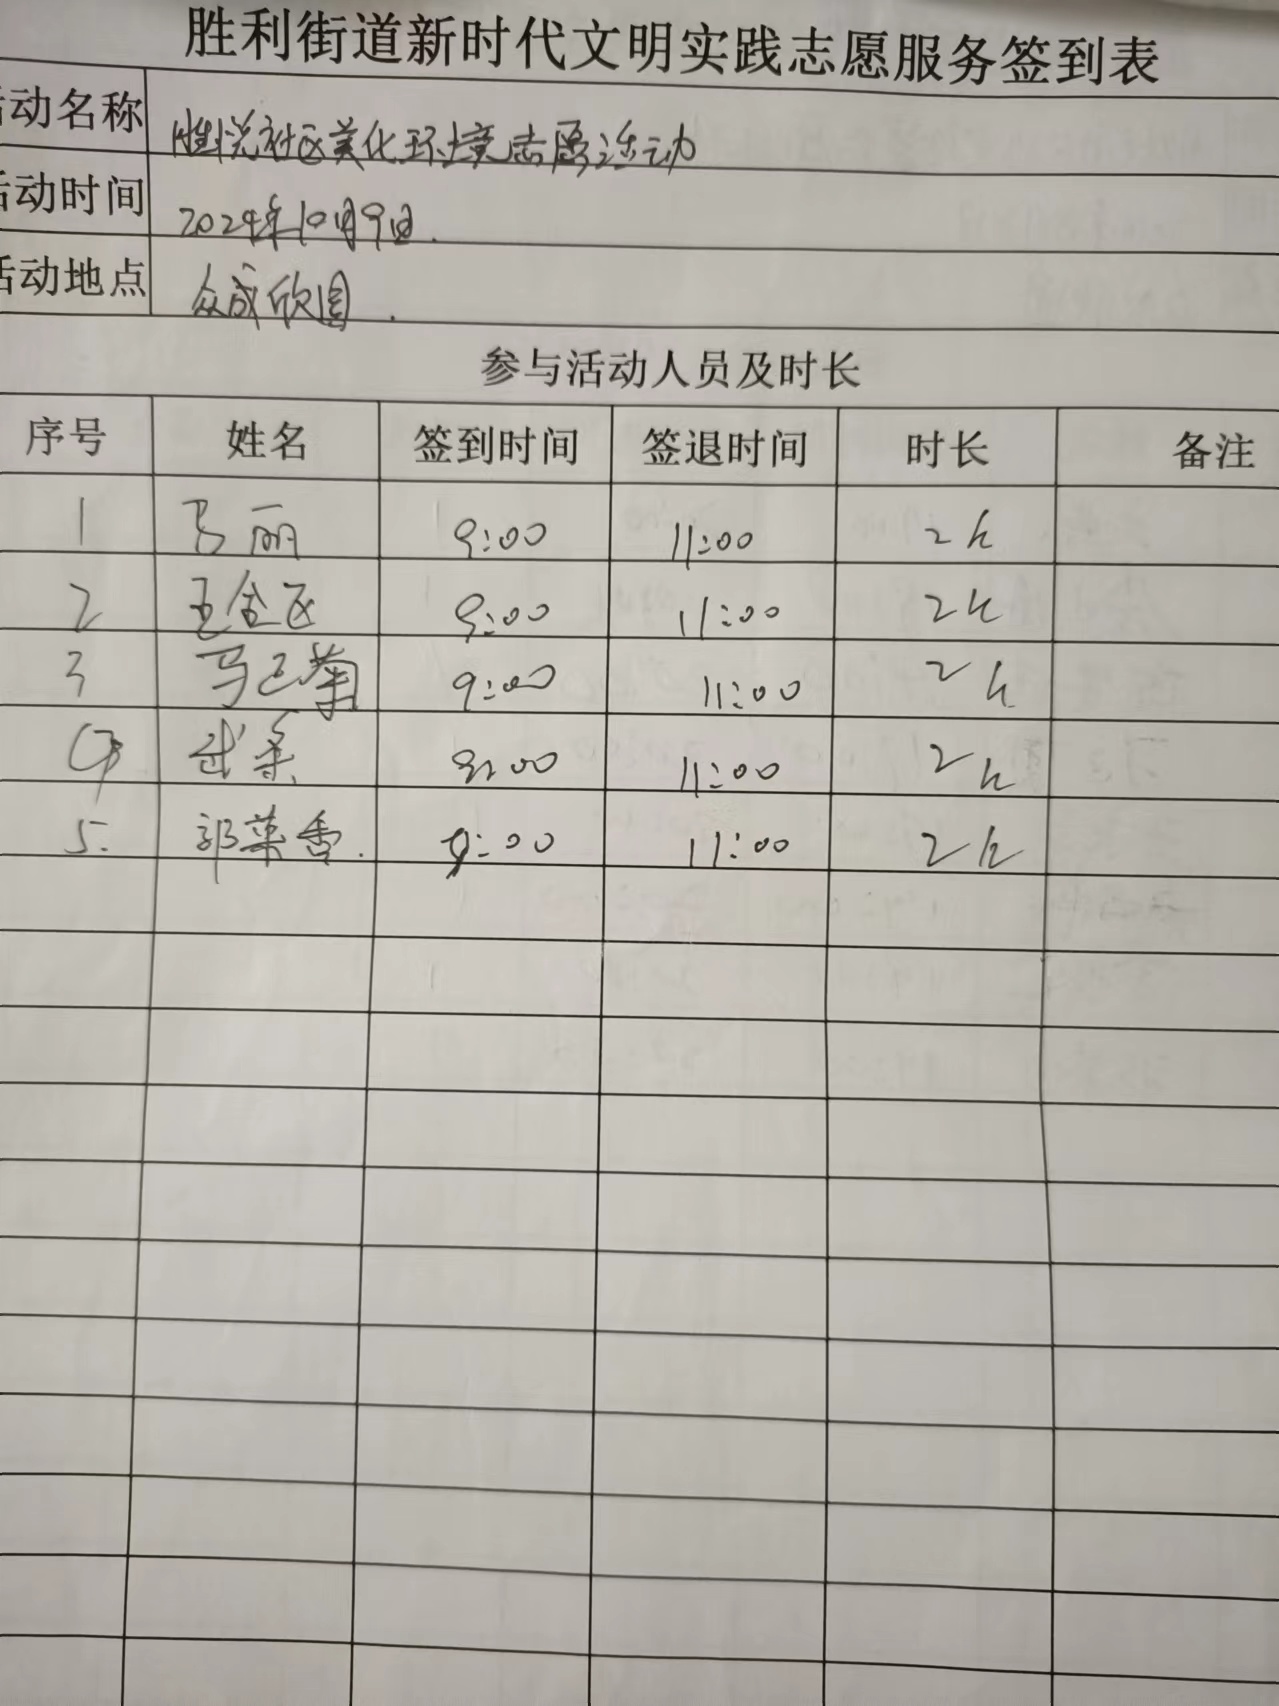 胜利街道新时代文明实践志愿服务签到表
活动名称 胜悦社区美化环境志愿活动
活动时间 2024年10月9日.
活动地点 众成欣园.
参与活动人员及时长
序号 姓名 签到时间 签退时间 时长 备注
1 马丽 9:00 11:00 2h
2 9:00 11:00 2h
3 9:00 11:00 2h
4 武秀 9:00 11:00 2h
5. 郭菜香. 9:00 11:00 2h